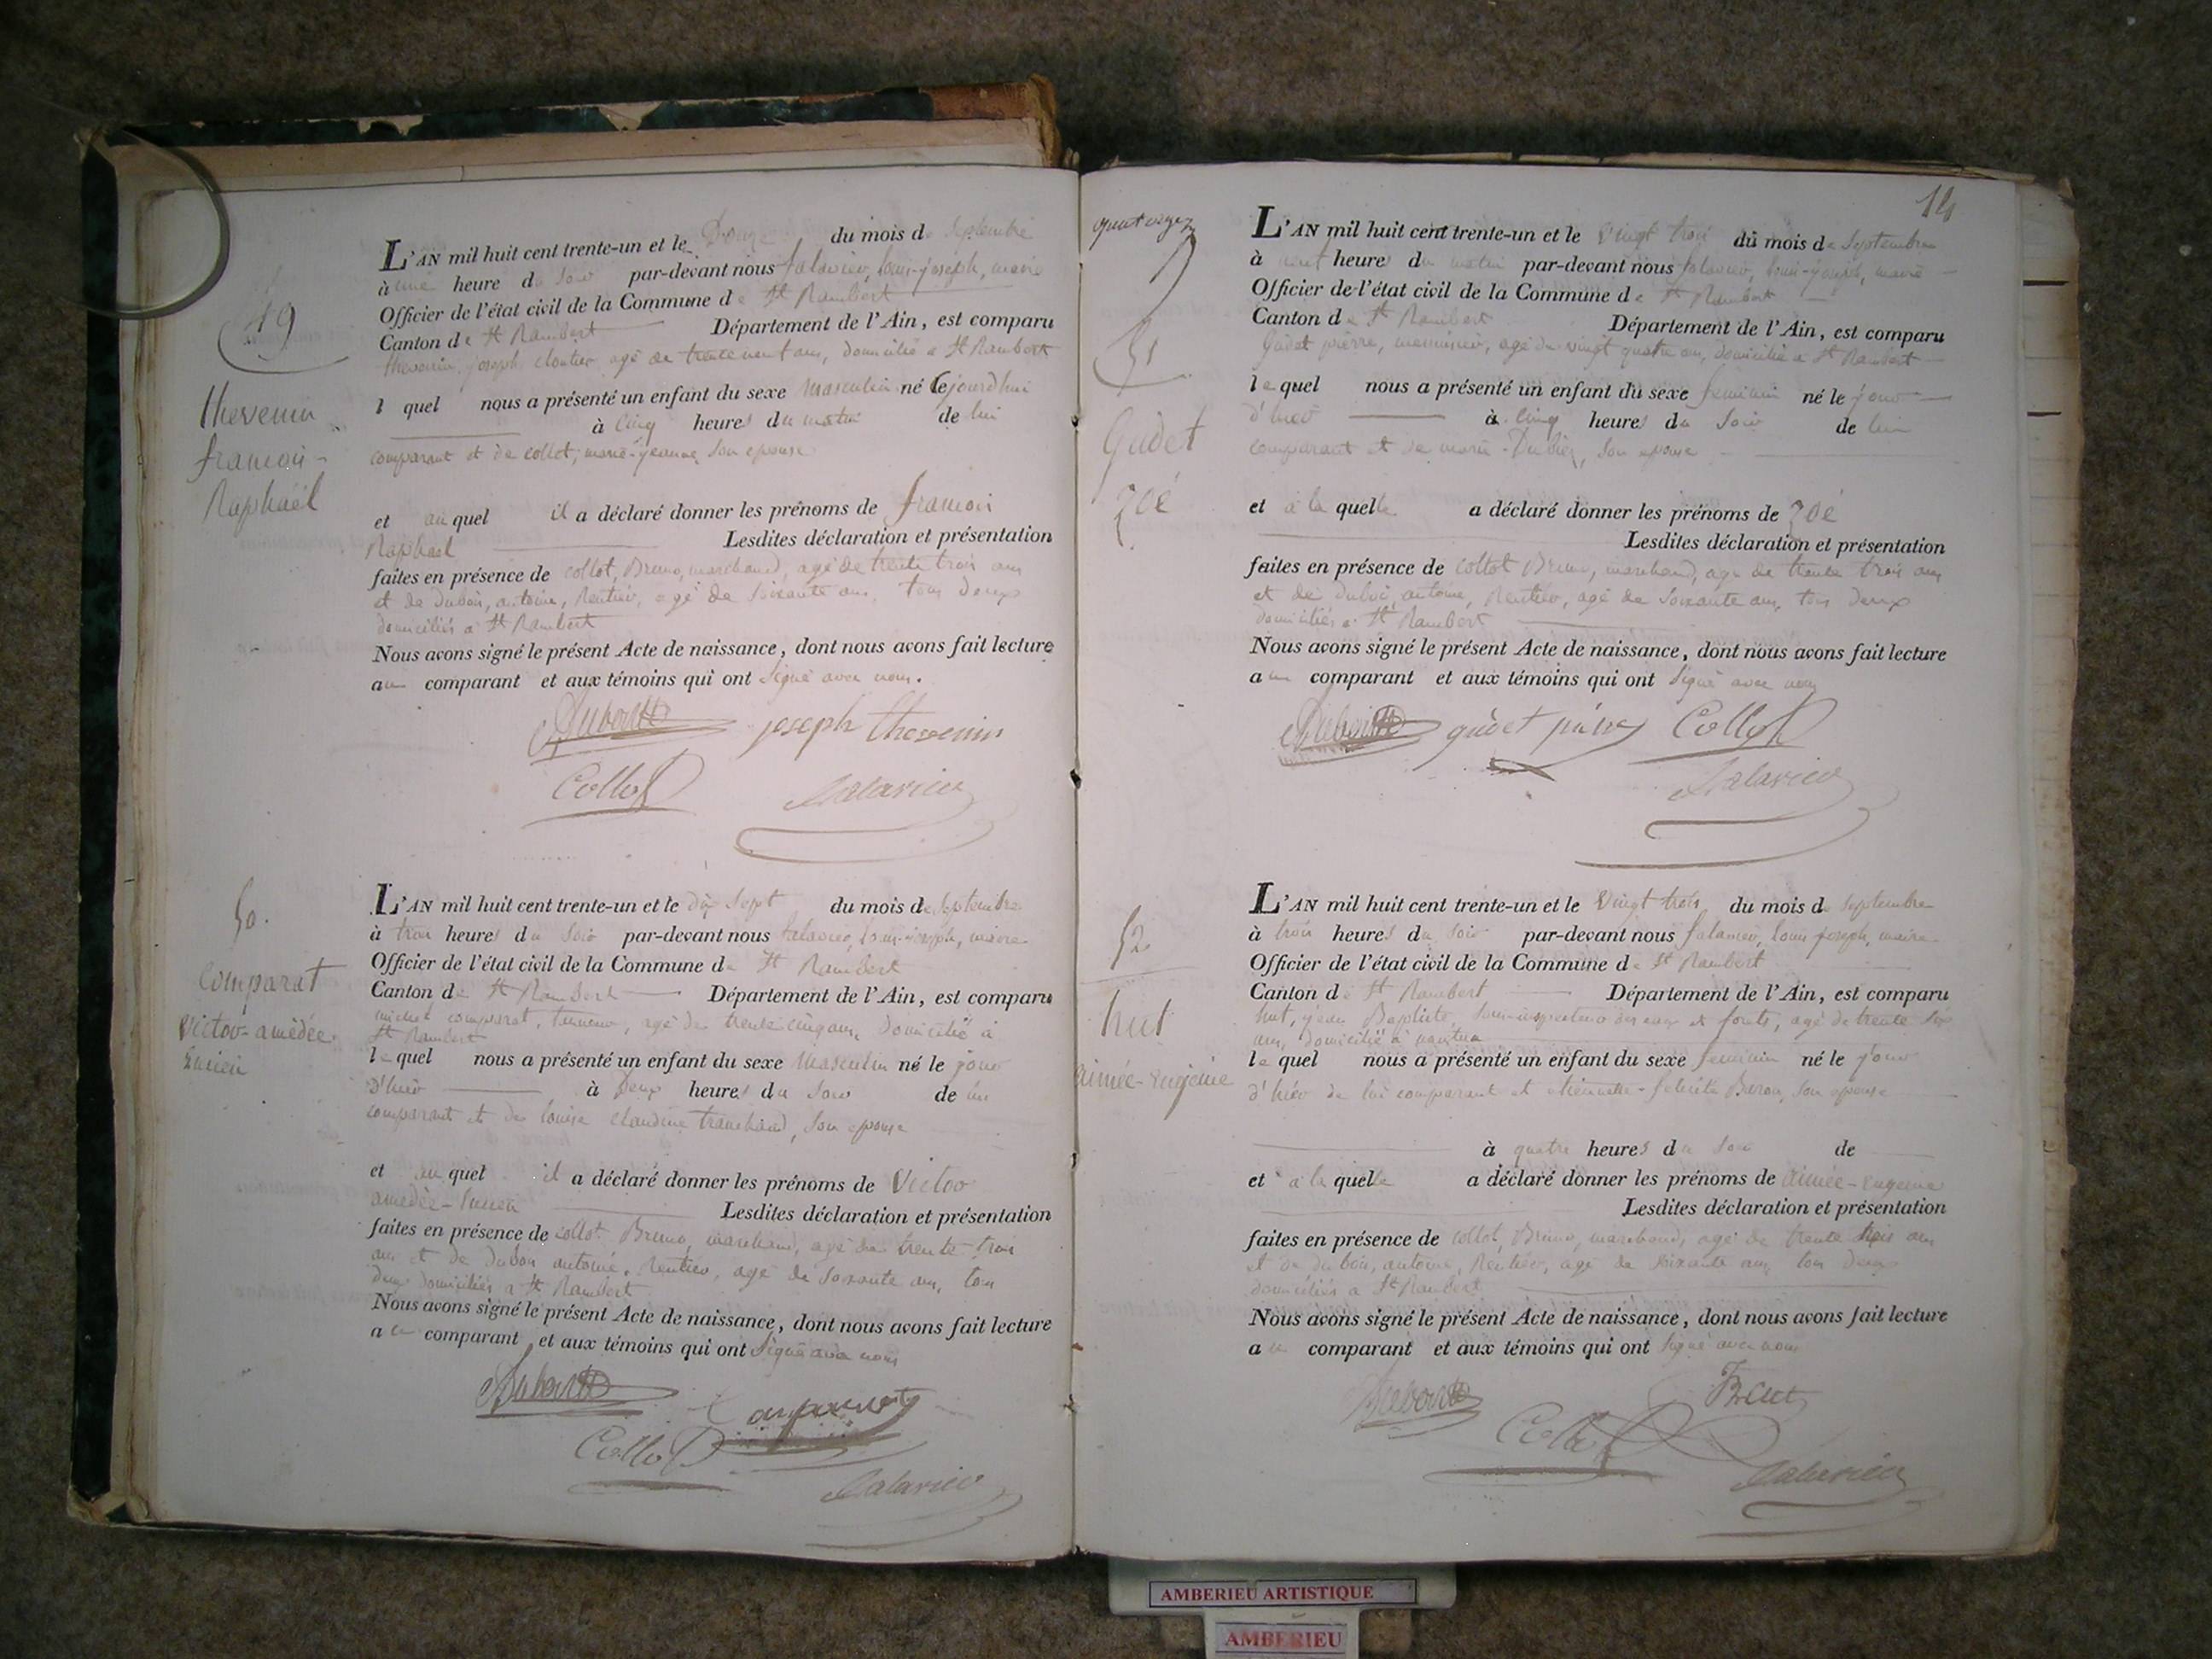 49
thevenin
françois-
Raphaël
L'AN mil huit cent trente-un et le Douze du mois de Septembre
à une heure du Soir par-devant nous falavier, louis-joseph, maire
Officier de l'état civil de la Commune de St Rambert
Canton de St Rambert Département de l'Ain, est comparu
thevenin, joseph cloutier agé de trente neuf ans, domicilié a St Rambert
l quel nous a présenté un enfant du sexe masculin né cejourdhui
à Cinq heures du matin de lui
comparant et de collot, marie-jeanne Son epouse
et auquel il a déclaré donner les prénoms de françois
Raphaël Lesdites déclaration et présentation
faites en présence de collot, Bruno, marchand, agé de trente trois ans
et de dubois, antoine, Rentier, agé de Soixante ans, tous deux
domiciliés a St Rambert
Nous avons signé le présent Acte de naissance, dont nous avons fait lecture
au comparant et aux témoins qui ont Signé avec nous.
Dubois joseph thevenin
Collot falavier
50.
Comparat
Victor-amédée-
Lucien
L'AN mil huit cent trente-un et le dix Sept du mois de Septembre
à trois heures du Soir par-devant nous falavier, louis-joseph, maire
Officier de l'état civil de la Commune de St Rambert
Canton de St Rambert Département de l'Ain, est comparu
michel comparat, tanneur, agé de trente cinq ans, domicilié à
St Rambert
lequel nous a présenté un enfant du sexe Masculin né le jour
D'hier à Deux heures du Soir de lui
comparant et de louise claudine tranchand, Son epouse
et auquel il a déclaré donner les prénoms de Victor
amédée-Lucien Lesdites déclaration et présentation
faites en présence de collot Bruno, marchand, agé de trente trois
ans et de dubois antoine, Rentier, agé de Soixante ans, tous
deux domiciliés a St Rambert
Nous avons signé le présent Acte de naissance, dont nous avons fait lecture
au comparant et aux témoins qui ont Signé avec nous
Dubois Comparat
Collot falavier
14
quatorze
51
Gudet
Zoé
L'AN mil huit cent trente-un et le Vingt trois du mois de Septembre
à neuf heures du matin par-devant nous falavier, louis-joseph, maire
Officier de l'état civil de la Commune de St Rambert
Canton de St Rambert Département de l'Ain, est comparu
Gudet pierre, menuisier, agé de vingt quatre ans, domicilié a St Rambert
lequel nous a présenté un enfant du sexe feminin né le jour
d'hier à cinq heures du Soir de lui
comparant et de marie Son epouse
et à laquelle a déclaré donner les prénoms de Zoé
Lesdites déclaration et présentation
faites en présence de Collot Bruno, marchand, agé de trente trois ans
et de dubois, antoine, Rentier, agé de Soixante ans, tous deux
domiciliés a St Rambert
Nous avons signé le présent Acte de naissance, dont nous avons fait lecture
au comparant et aux témoins qui ont Signé avec nous
Dubois gudet pierre Collot
falavier
52
hut
aimée-Eugénie
L'AN mil huit cent trente-un et le Vingt trois du mois de Septembre
à trois heures du Soir par-devant nous falavier, louis joseph, maire
Officier de l'état civil de la Commune de St Rambert
Canton de St Rambert Département de l'Ain, est comparu
hut, jean Baptiste, Sous-inspecteur des eaux et forets, agé de trente Six
ans, domicilié à nantua
lequel nous a présenté un enfant du sexe feminin né le jour
d'hier de lui comparant et etiennette-felicité Son epouse
à quatre heures du Soir de
et à laquelle a déclaré donner les prénoms de aimée-Eugenie
Lesdites déclaration et présentation
faites en présence de collot, Bruno, marchand, agé de trente trois ans
et de dubois, antoine, Rentier, agé de Soixante ans tous deux
domiciliés a St Rambert
Nous avons signé le présent Acte de naissance, dont nous avons fait lecture
au comparant et aux témoins qui ont Signé avec nous
Dubois
Collot falavier
AMBERIEU ARTISTIQUE
AMBERIEU